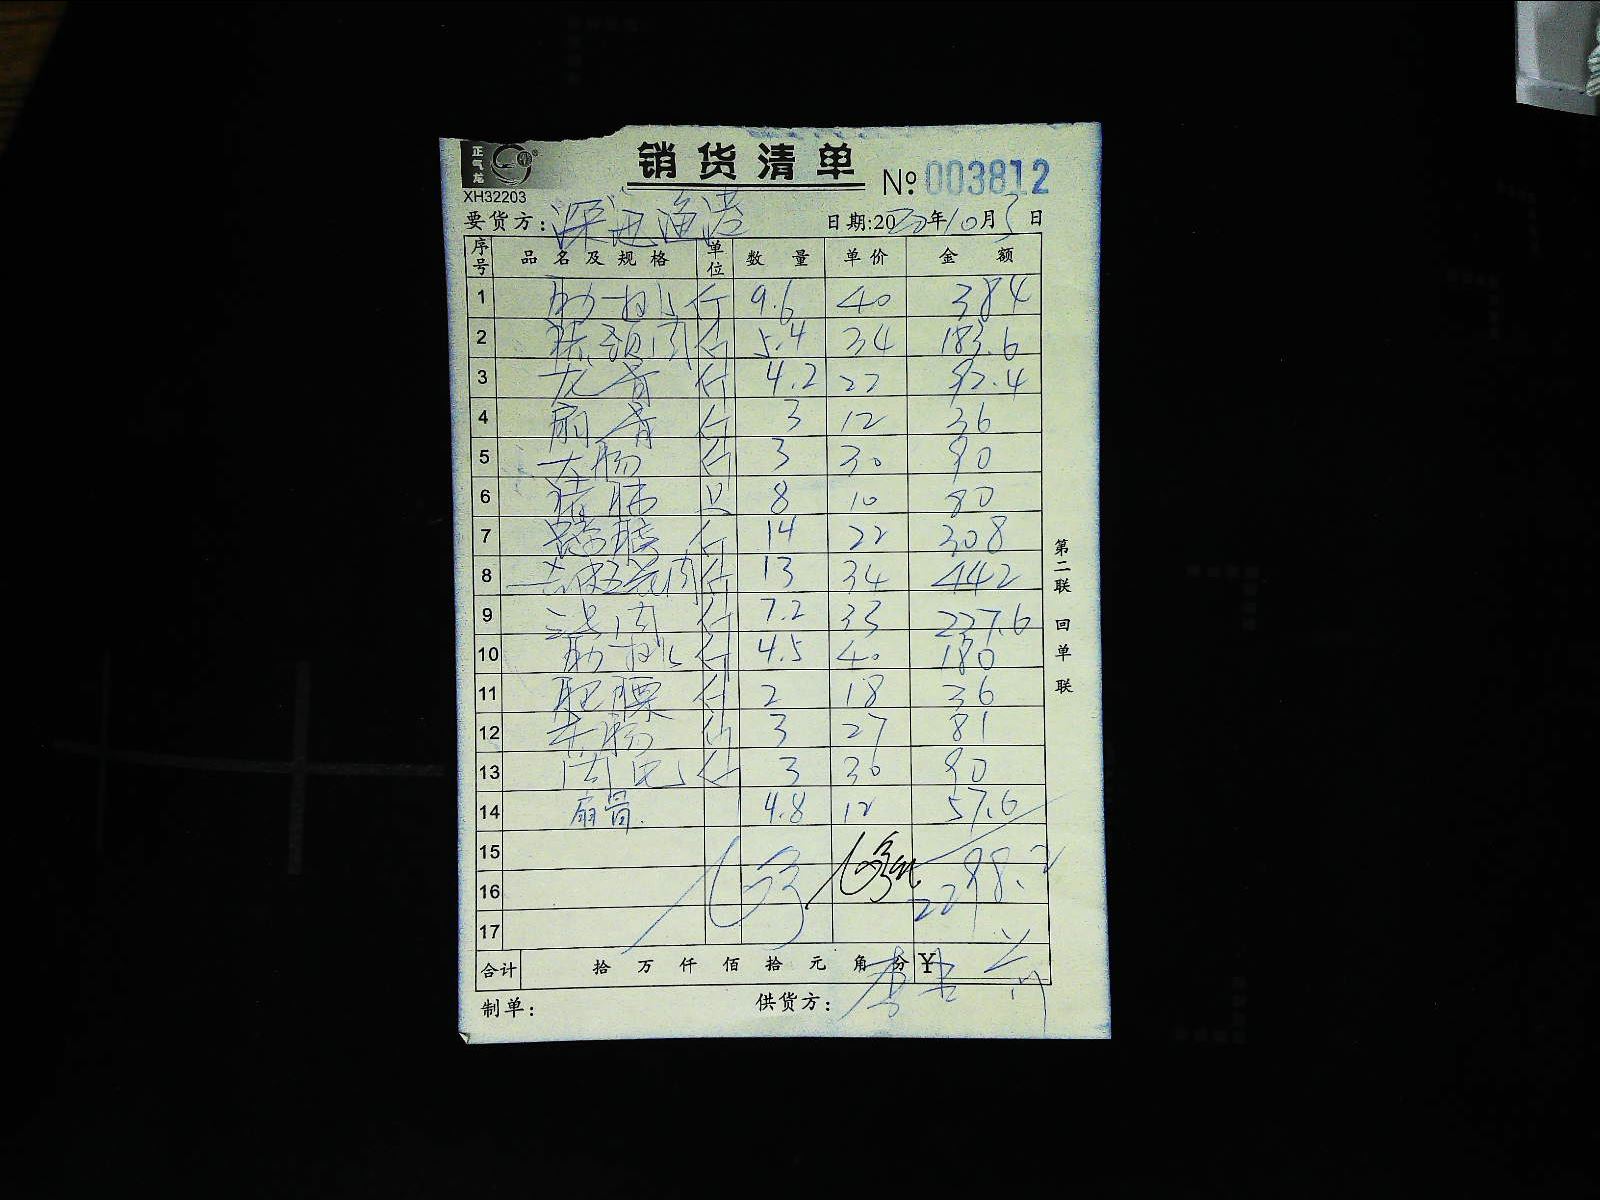 正气龙
销货清单
№ 003812
XH32203
要货方: 深 渔港 日期:2020年10月3日
序号 品名及规格 单位 数量 单价 金额
1 肋排 斤 9.6 40 384
2 猪颈肉 斤 5.4 34 183.6
3 龙骨 斤 4.2 22 92.4
4 扇骨 斤 3 12 36
5 大肠 斤 3 30 90
6 猪肺 只 8 10 80
7 斤 14 22 308
8 五花肉 斤 13 34 442
9 肉 斤 7.2 33 237.6
10 肋排 斤 4.5 40 180
11 肥膘 斤 2 18 36
12 肠 斤 3 27 81
13 斤 3 30 90
14 扇骨. 4.8 12 57.6
15
16 2298.2
17
合计 拾 万 仟 佰 拾 元 角 分 ¥
制单: 供货方: 李
第二联 回单联